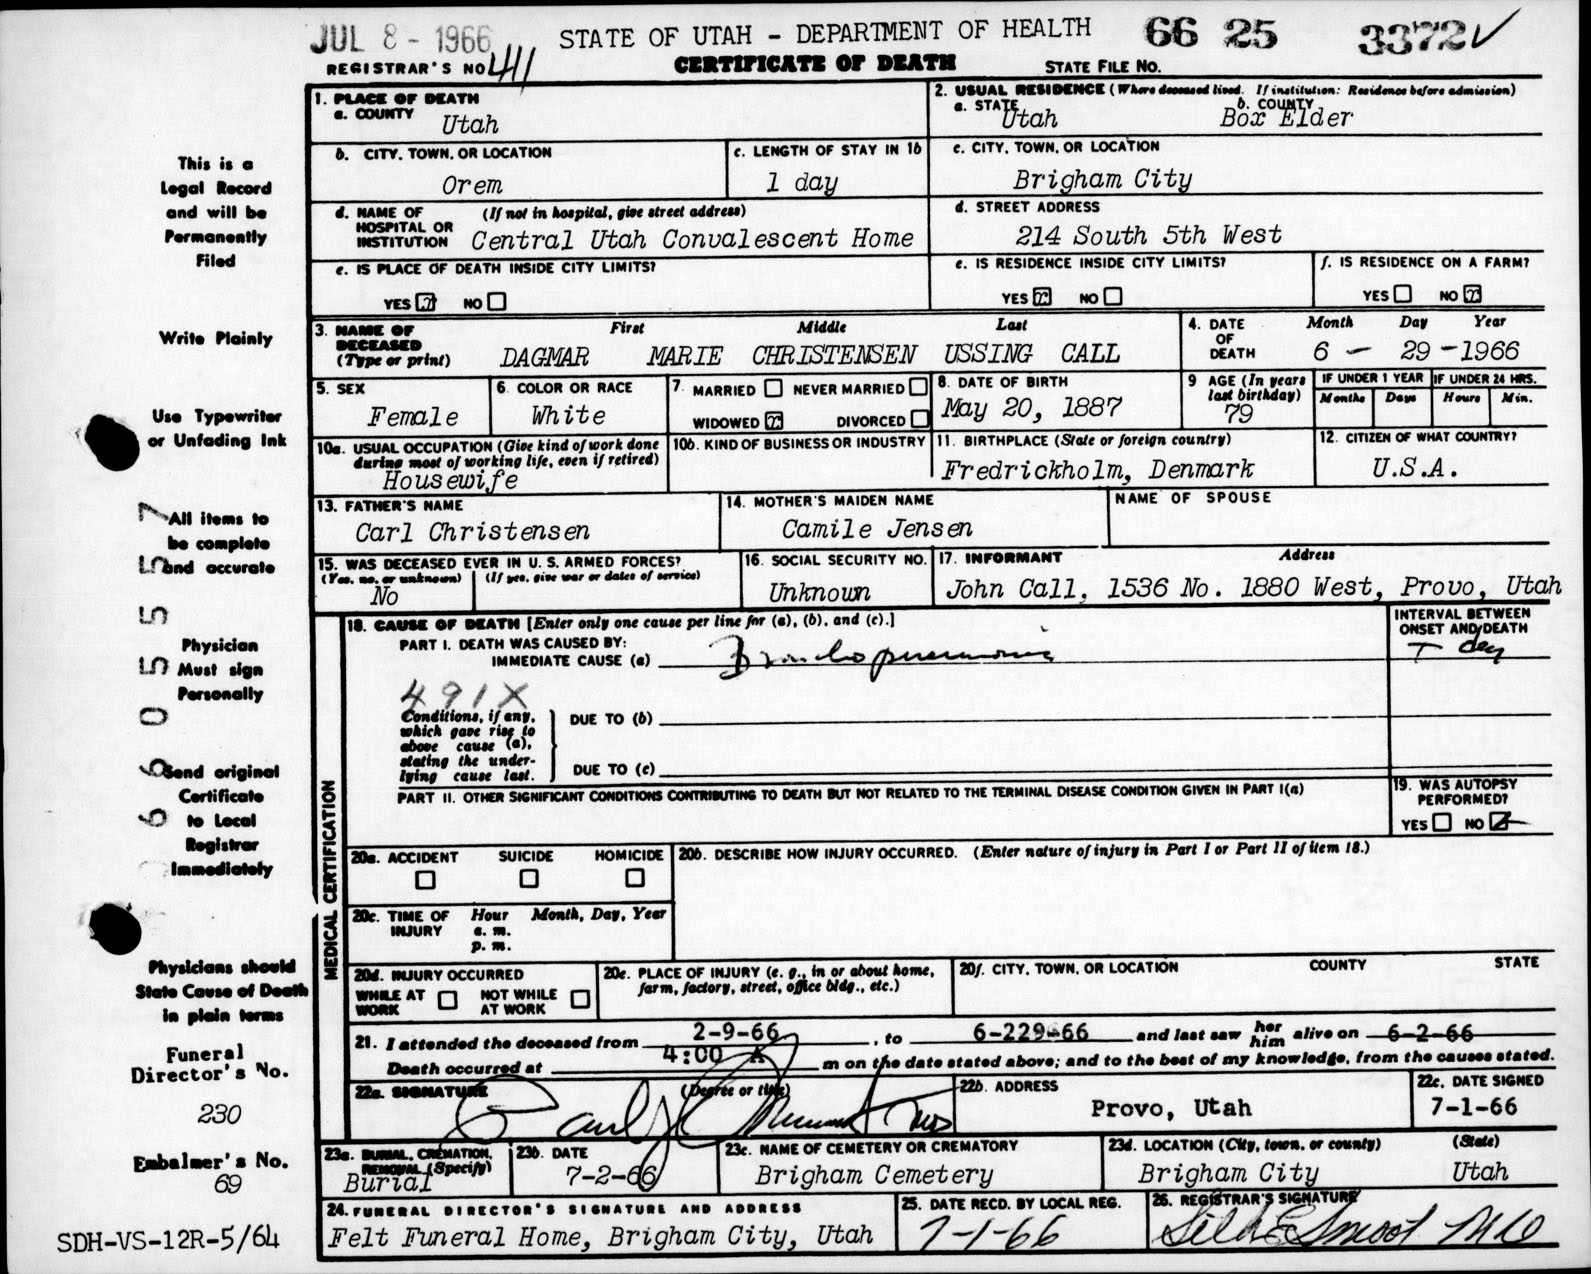 JUL 8 - 1966
STATE OF UTAH - DEPARTMENT OF HEALTH
66 25 3372 ✓
REGISTRAR'S NO. 411
CERTIFICATE OF DEATH
STATE FILE NO.
This is a
Legal Record
and will be
Permanently
Filed
Write Plainly
Use Typewriter
or Unfading Ink
All items to
be complete
and accurate
Physician
Must sign
Personally
Send original
Certificate
to Local
Registrar
Immediately
Physicians should
State Cause of Death
in plain terms
Funeral
Director's No.
230
Embalmer's No.
69
SDH-VS-12R-5/64
6 6 0 5 5 5 7
1. PLACE OF DEATH
a. COUNTY
Utah
2. USUAL RESIDENCE (Where deceased lived. If institution: Residence before admission)
a. STATE Utah
b. COUNTY Box Elder
b. CITY, TOWN, OR LOCATION
Orem
c. LENGTH OF STAY IN 1b
1 day
c. CITY, TOWN, OR LOCATION
Brigham City
d. NAME OF HOSPITAL OR INSTITUTION (If not in hospital, give street address)
Central Utah Convalescent Home
d. STREET ADDRESS
214 South 5th West
e. IS PLACE OF DEATH INSIDE CITY LIMITS?
YES x NO
e. IS RESIDENCE INSIDE CITY LIMITS?
YES x NO
f. IS RESIDENCE ON A FARM?
YES NO x
3. NAME OF DECEASED (Type or print)
First Middle Last
DAGMAR MARIE CHRISTENSEN USSING CALL
4. DATE OF DEATH
Month Day Year
6 - 29 - 1966
5. SEX
Female
6. COLOR OR RACE
White
7. MARRIED NEVER MARRIED
WIDOWED x DIVORCED
8. DATE OF BIRTH
May 20, 1887
9 AGE (In years last birthday)
79
IF UNDER 1 YEAR
Months Days
IF UNDER 24 HRS.
Hours Min.
10a. USUAL OCCUPATION (Give kind of work done during most of working life, even if retired)
Housewife
10b. KIND OF BUSINESS OR INDUSTRY
11. BIRTHPLACE (State or foreign country)
Fredrickholm, Denmark
12. CITIZEN OF WHAT COUNTRY?
U.S.A.
13. FATHER'S NAME
Carl Christensen
14. MOTHER'S MAIDEN NAME
Camile Jensen
NAME OF SPOUSE
15. WAS DECEASED EVER IN U. S. ARMED FORCES?
(Yes, no, or unknown) (If yes, give war or dates of service)
No
16. SOCIAL SECURITY NO.
Unknown
17. INFORMANT Address
John Call, 1536 No. 1880 West, Provo, Utah
MEDICAL CERTIFICATION
18. CAUSE OF DEATH [Enter only one cause per line for (a), (b), and (c).]
INTERVAL BETWEEN ONSET AND DEATH
PART I. DEATH WAS CAUSED BY:
IMMEDIATE CAUSE (a) Bronchopneumonia
1 day
491X
Conditions, if any, which gave rise to above cause (a), stating the underlying cause last.
DUE TO (b)
DUE TO (c)
PART II. OTHER SIGNIFICANT CONDITIONS CONTRIBUTING TO DEATH BUT NOT RELATED TO THE TERMINAL DISEASE CONDITION GIVEN IN PART I(a)
19. WAS AUTOPSY PERFORMED?
YES NO
20a. ACCIDENT SUICIDE HOMICIDE
20b. DESCRIBE HOW INJURY OCCURRED. (Enter nature of injury in Part I or Part II of item 18.)
20c. TIME OF INJURY Hour Month, Day, Year
a. m.
p. m.
20d. INJURY OCCURRED
WHILE AT WORK NOT WHILE AT WORK
20e. PLACE OF INJURY (e. g., in or about home, farm, factory, street, office bldg., etc.)
20f. CITY, TOWN, OR LOCATION COUNTY STATE
21. I attended the deceased from 2-9-66, to 6-229-66 and last saw her him alive on 6-2-66
Death occurred at 4:00 A m on the date stated above; and to the best of my knowledge, from the causes stated.
22a. SIGNATURE (Degree or title)
22b. ADDRESS
Provo, Utah
22c. DATE SIGNED
7-1-66
23a. BURIAL, CREMATION, REMOVAL (Specify)
Burial
23b. DATE
7-2-66
23c. NAME OF CEMETERY OR CREMATORY
Brigham Cemetery
23d. LOCATION (City, town, or county) (State)
Brigham City Utah
24. FUNERAL DIRECTOR'S SIGNATURE AND ADDRESS
Felt Funeral Home, Brigham City, Utah
25. DATE RECD. BY LOCAL REG.
7-1-66
26. REGISTRAR'S SIGNATURE